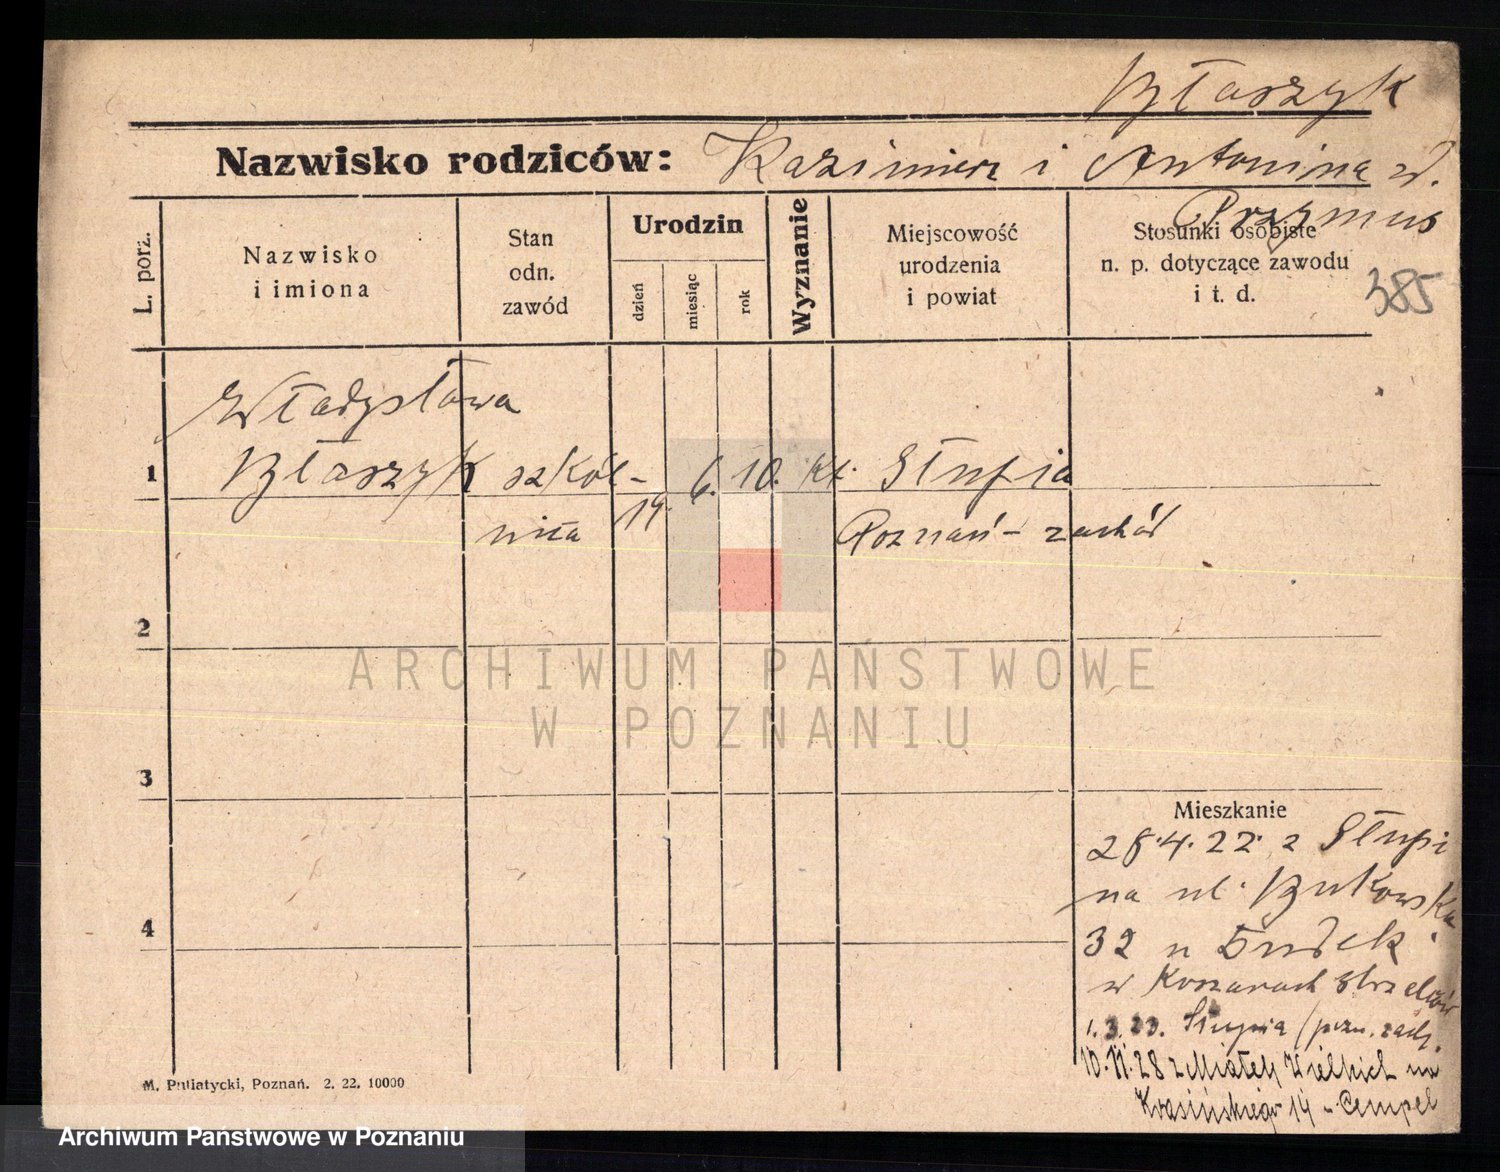 Błaszyk
Nazwisko rodziców: Kazimierz i Antonina z d.
Przymus
L. porz.
Nazwisko
i imiona
Stan
odn.
zawód
Urodzin
dzień
miesiąc
rok
Wyznanie
Miejscowość
urodzenia
i powiat
Stosunki osobiste
n. p. dotyczące zawodu
i t. d.
385
Władysława
1 Błaszyk szkól- 19. 6. 10. kt. Słupia
nica Poznań - zachód
2
ARCHIWUM PAŃSTWOWE
W POZNANIU
3
Mieszkanie
28.4.22 z Słupi
na ul. Bukowska
4
32 u Dudek
w Koszarach Strzelców
1.3.23. Słupia (pozn. zach.
10.11.28 z Wielkich na
Krasińskiego 14 u Cempel
M. Putiatycki, Poznań. 2. 22. 10000
Archiwum Państwowe w Poznaniu